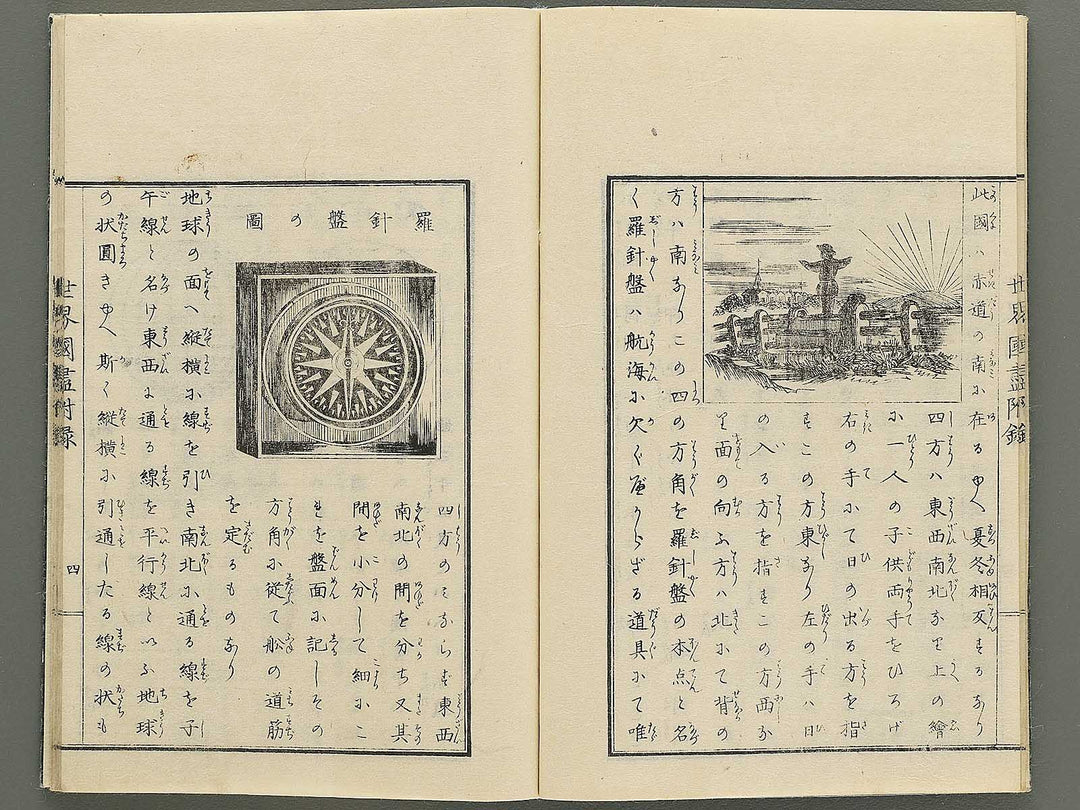 世界國盡附録
此國ハ赤道の南に在るゆへ夏冬相反するなり
四方ハ東西南北なり上の繪
に一人の子供両手をひろげ
右の手にて日の出る方を指
すこの方東なり左の手ハ日
の入る方を指すこの方西な
り面の向ふ方ハ北にて背の
方ハ南なりこの四の方角を羅針盤の本点と名
く羅針盤ハ航海に欠く可からざる道具にて唯
四方のみならず東西
南北の間を分ち又其
間を小分して細にこ
れを盤面に記しその
方角に従て舩の道筋
を定るものなり
羅針盤の圖
地球の面へ縦横に線を引き南北に通る線を子
午線と名け東西に通る線を平行線といふ地球
の状圓きゆへ斯く縦横に引通したる線の状も
世界國盡附録
四